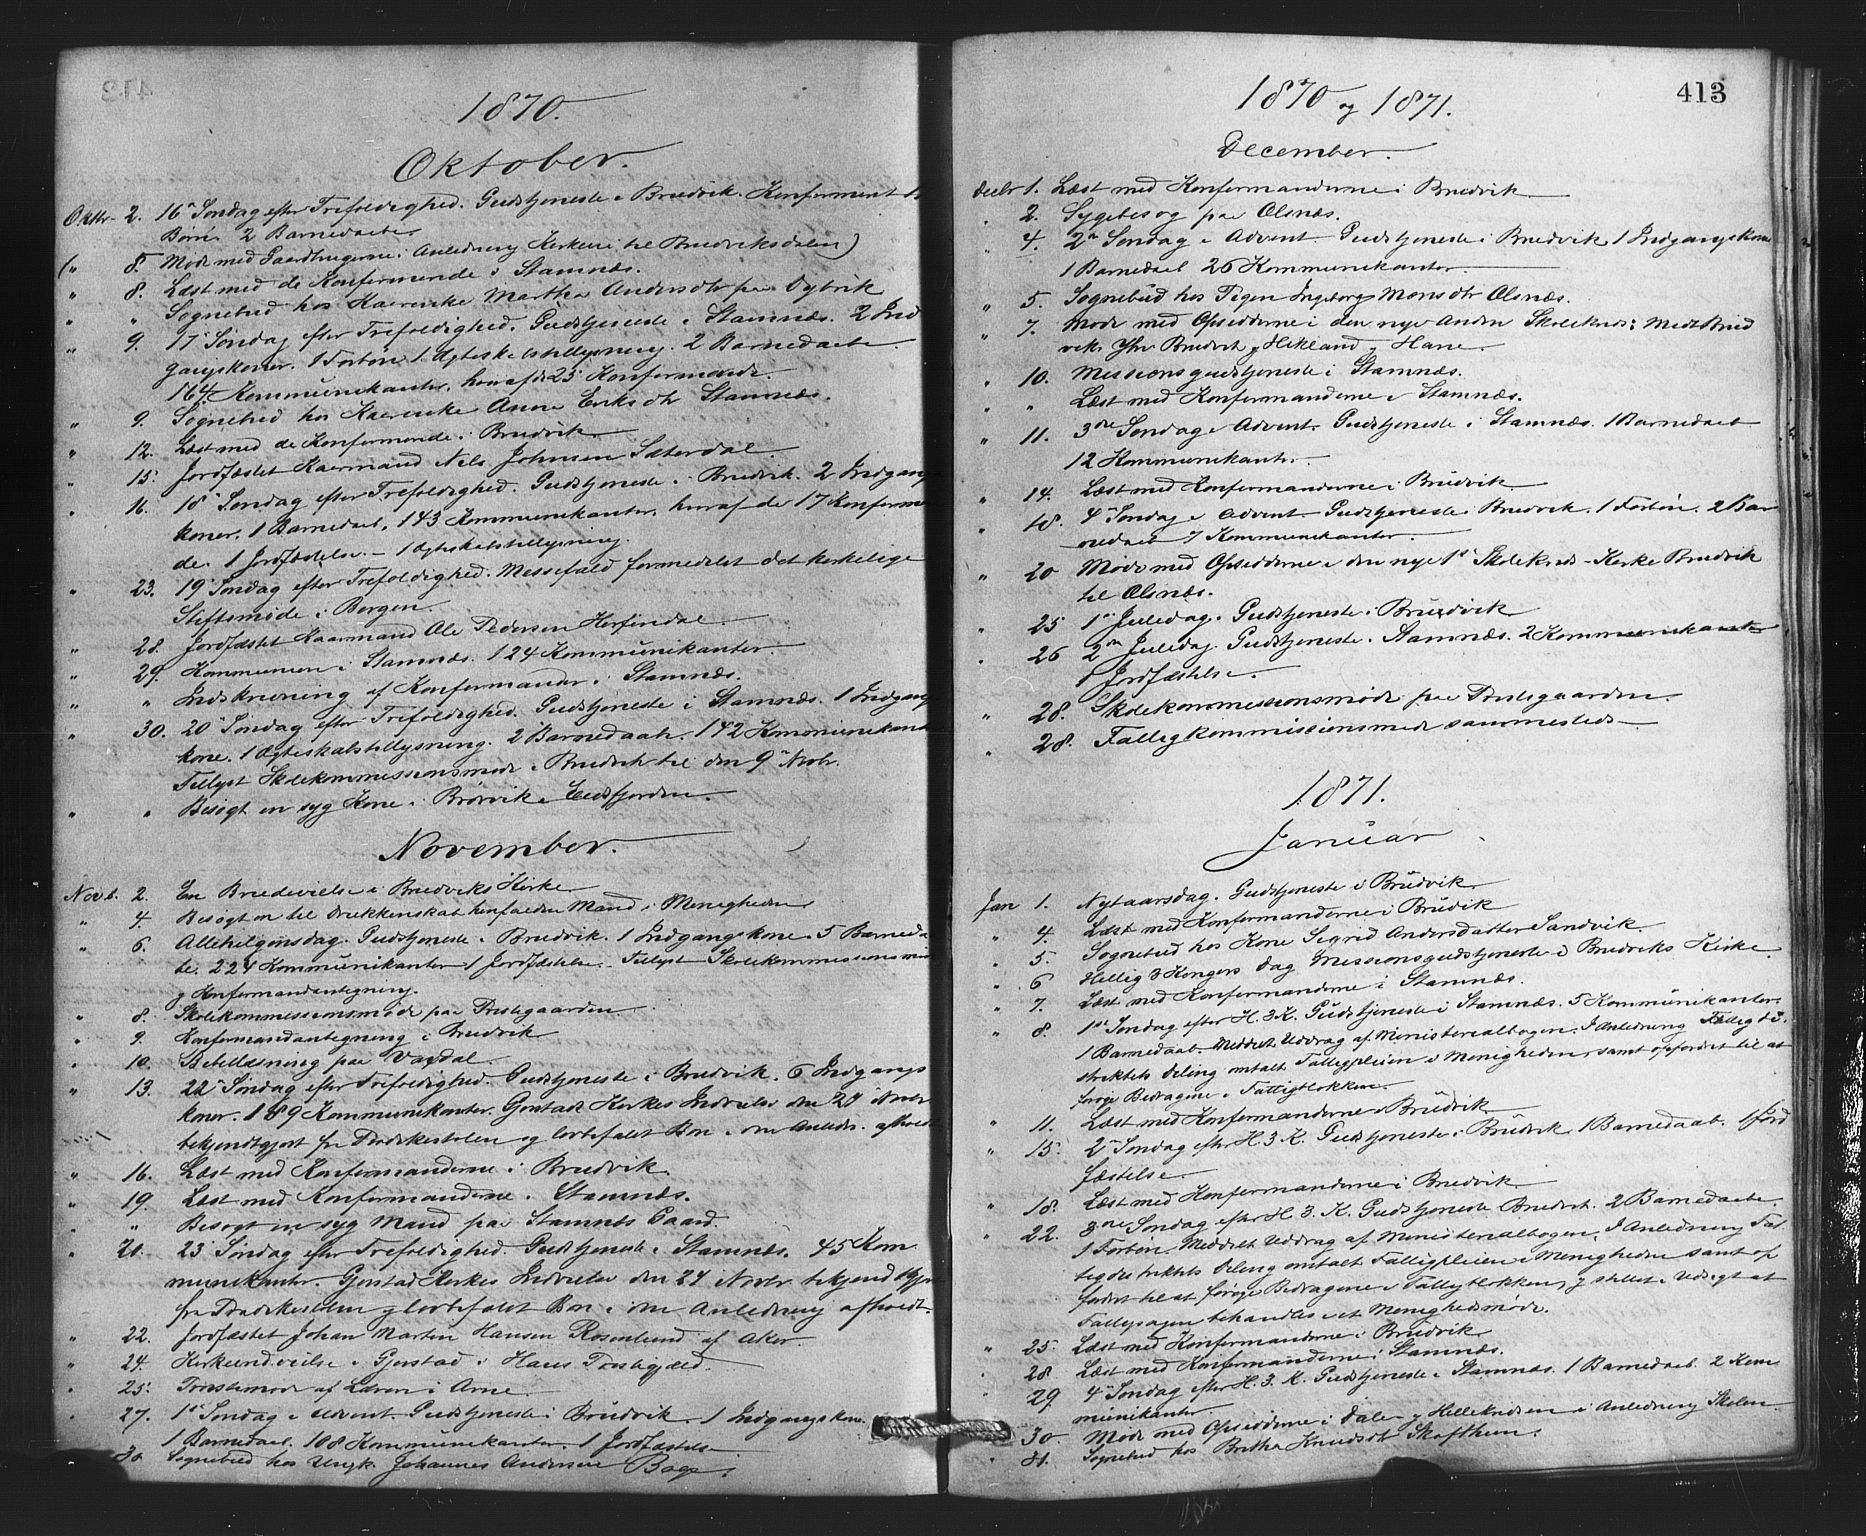 1870.
Oktober.
Oktbr. 2. 16de Søndag efter Trefoldighed. Gudstjeneste i Bruvik. Konfirmeret
Børn. 2 Barnedaab.
(" 8. Møde med Gaardbrugerne i Anledning Kirkevei til Bruviksdalen)
" 8. Læst med de Konfirmerede i Stamnæs.
" " Sognebud hos Kaarenke Martha Andersdtr paa
" 9. 17de Søndag efter Trefoldighed. Gudstjeneste i Stamnæs. 2 Ind
gangskoner. 1 Forbøn. 1 Ægteskabstillysning. 2 Barnedaab.
164 Kommunikanter, heraf de 25 Konfirmerede.
" 9. Sognebud hos Kaarenke Anna Eriksdtr Stamnæs.
" 12. Læst med de Konfirmerede i Bruvik.
" 15. Jordfæstet Kaarmand Nels Johnsen Sæterdal.
" 16. 18de Søndag efter Trefoldighed. Gudstjeneste i Bruvik. 2 Indgangs
koner. 1 Barnedaab. 143 Kommunikanter, heraf de 17 Konfirmere
de. 1 Jordfæstelse. – 1 Ægteskabstillysning.
" 23. 19de Søndag efter Trefoldighed. Messefald formedelst det kirkelige
Stiftsmøde i Bergen.
" 28. Jordfæstet Kaarmand Ole Pedersen Herfindal.
" 29. Kommunion i Stamnæs. 124 Kommunikanter.
" " Indskrivning af Konfirmander i Stamnæs.
" 30. 20de Søndag efter Trefoldighed. Gudstjeneste i Stamnæs. 1 Indgangs
kone. 1 Ægteskabstillysning. 2 Barnedaab. 142 Kommunikant
Tillyst Skolekommissionsmøde i Bruvik til den 9de Novbr.
" " Besøgt en syg Kone i Brørvik i Eidsfjorden.
November.
Novb. 2. En Brudevielse i Bruviks Kirke.
" 4. Besøgt en til Drukkenskab henfalden Mand i Menigheden
" 6. Allehelgensdag. Gudstjeneste i Bruvik. 1 Indgangskone. 5 Barneda
be. 224 Kommunikanter 1 Jordfæstelse. Tillyst Skolekommissionsmøde
og Konfirmandantegning.
" 8. Skolekommissionsmøde paa Prestegaarden
" 9. Konfirmandantegning i Bruvik
" 10. Bibellæsning paa Vaxdal.
" 13. 22de Søndag efter Trefoldighed. Gudstjeneste i Bruvik. 6 Indgangs
koner. 189 Kommunikanter. Gjerstad Kirkes Indvielse den 24 Novbr
bekjendtgjort fra Prædikestolen og lovbefalet Bøn i den Anledn. afholdt
" 16. Læst med Konfirmanderne i Bruvik.
" 19. Læst med Konfirmanderne i Stamnæs.
" " Besøgt en syg Mand paa Stamnes Gaard.
" 20. 23de Søndag efter Trefoldighed. Gudstjeneste i Stamnæs. 45 Kom
munikanter. Gjerstad Kirkes Indvielse den 24 Novbr bekjendtgjort
fra Prædikestolen og lovbefalet Bøn i den Anledning afholdt.
" 22. Jordfæstet Johan Martin Hansen Rosenlund af Aker.
" 24. Kirkeindvielse i Gjerstad i Haus Prestegjeld.
" 25. Prøstemøde i Arne.
" 27. 1ste Søndag i Advent. Gudstjeneste i Bruvik. 1 Indgangskone.
1 Barnedaab. 108 Kommunikanter. 1 Jordfæstelse
30 Sognebud hos Ungk. Johannes Andersen Boge.
413
1870 og 1871.
December.
Decbr 1. Læst med Konfirmanderne i Bruvik
" 2. Sygebesøg paa Olsnæs.
" 4. 2den Søndag i Advent. Gudstjeneste i Bruvik 1 Indgangskone
1 Barnedaab 26 Kommunikanter.
" 5. Sognebud hos Pigen Ingeborg Monsdtr Olsnæs.
" 7. Møde med Opsidderne i den nye Anden Skolekreds: Midt Brud
vik, Ytre Bruvik og Hekland og Hane.
" 10. Missionsgudstjeneste i Stamnæs.
" " Læst med Konfirmanderne i Stamnæs.
" 11. 3die Søndag i Advent. Gudstjeneste i Stamnæs. 1 Barnedaab
12 Kommunikanter.
" 14. Læst med Konfirmanderne i Bruvik
" 18. 4de Søndag i Advent Gudstjeneste i Bruvik. 1 Forbøn. 2 Bar
nedaab 7 Kommunikanter.
" 20 Møde med Opsidderne i den nye 1ste Skolekreds – Kirke Bruvik
til Olsnæs.
" 25 1ste Juledag. Gudstjeneste i Bruvik
" 26 2den Juledag. Gudstjeneste i Stamnæs. 2 Kommunikanter
1 Jordfæstelse.
" 28. Skolekommissionsmøde paa Prestegaarden.
" 28. Fattigkommissionsmøde sammesteds
1871.
Januar
Jan 1. Nytaarsdag. Gudstjeneste i Bruvik.
" 4. Læst med Konfirmanderne i Bruvik
" 5. Sognebud hos Kone Sigrid Andersdatter Sandvik.
" 6 Hellig 3 Kongers Dag Missionsgudstjeneste i Bruviks Kirke.
" 7. Læst med Konfirmanderne i Stamnæs.
" 8. 1ste Søndag efter H. 3 K. Gudstjeneste i Stamnæs. 5 Kommunikanter.
1 Barnedaab. Meddelt Uddrag af Ministerialbogen. I Anledning Fattigdi
striktets Deling omtalt Fattigpleien i Menigheden samt opfordret til at
forøge Bidragene i Fattigblokken.
" 11. Læst med Konfirmanderne i Bruvik
" 15. 2den Søndag efter H. 3 K. Gudstjeneste i Bruvik 1 Barnedaab. 1 Jord
fæstelse.
" 18. Læst med Konfirmanderne i Bruvik.
" 22. 3die Søndag efter H. 3. K. Gudstjeneste Bruvik. 2 Barnedaab.
1 Forbøn. Meddelt Uddrag af Ministerialbogen. I Anledning Fat
tigdistriktets Deling omtalt Fattigpleien i Menigheden samt op
fordret til at forøge Bidragene i Fattigblokken og stillet i Udsigt at
Fattigsagen behandles i et Menighedsmøde.
" 25. Læst med Konfirmanderne i Bruvik
" 28 Læst med Konfirmanderne i Stamnæs.
" 29. 4de Søndag efter H. 3. K. Gudstjeneste i Stamnæs. 1 Barnedaab. 2 Kom
munikanter.
" 30. Møde med Opsidderne i Dale og Hellekredsen i Anledning Skolen.
" 31. Sognebud hos Brita Knudsdt Skaftheim.